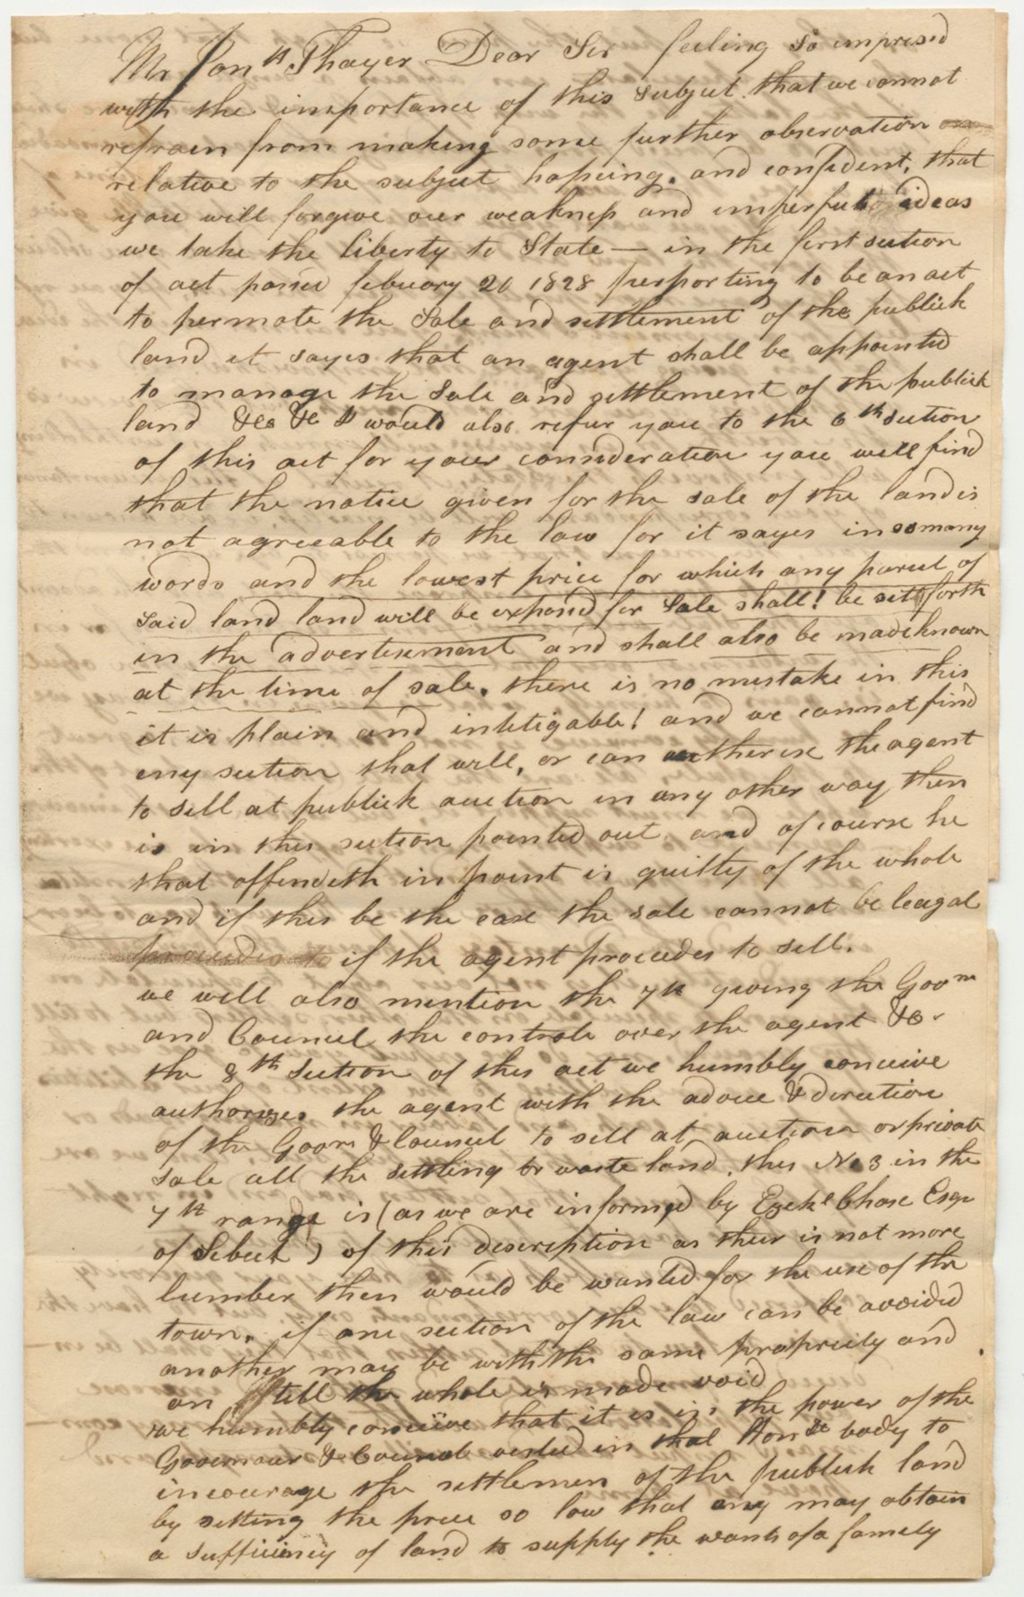 Mr Jonth Thayer Dear Sir feeling so impresd
with the importance of this subject that we cannot
refrain from making some further observation
relative to the subject hopeing. and confident, that
you will forgive our weakness and imperfect ideas
we take the liberty to State — in the first section
of act passed febuary 20 1828 purporting to be an act
to permote the Sale and settlement of the publick
land it sayes that an agent shall be appointed
to manage the Sale and settlement of the publick
land &c &c I would also refer you to the 6th section
of this act for your consideration you will find
that the notice given for the sale of the land is
not agreeable to the law for it sayes in so many
words and the lowest price for which any parcel of
said land land will be exposed for Sale shall! be sett forth
in the advertisement and shall also be made known
at the time of sale. there is no mistake in this
it is plain and inteligable! and we cannot find
eny section that will, or can autherise the agent
to sell at publick auction in any other way then
is in this section pointed out and of course he
that offendeth in point is guilty of the whole
and if this be the case the sale cannot be leagal
if the agent procedes to sell.
we will also mention the 7th giving the Goovr
and Council the controle over the agent &c.
the 8th section of this act we humbly conceive
authorizes the agent with the advice & direction
of the Goovr & Council to sell at auction or private
sale all the settling or waste land. this No 3 in the
7th range is (as we are informed by Ezekl Chase Esqr
of Sebeck) of this description as their is not more
lumber then would be wanted for the use of the
town. if one section of the law can be avoided
another may be with the same propriety and
on still the whole is made void
we humbly conceive that it is in the power of the
Governour & Council vested in that Honble body to
incourage the settlemen of the publick land
by setting the price so low that any may obtain
a sufficiency of land to supply the wants of a family